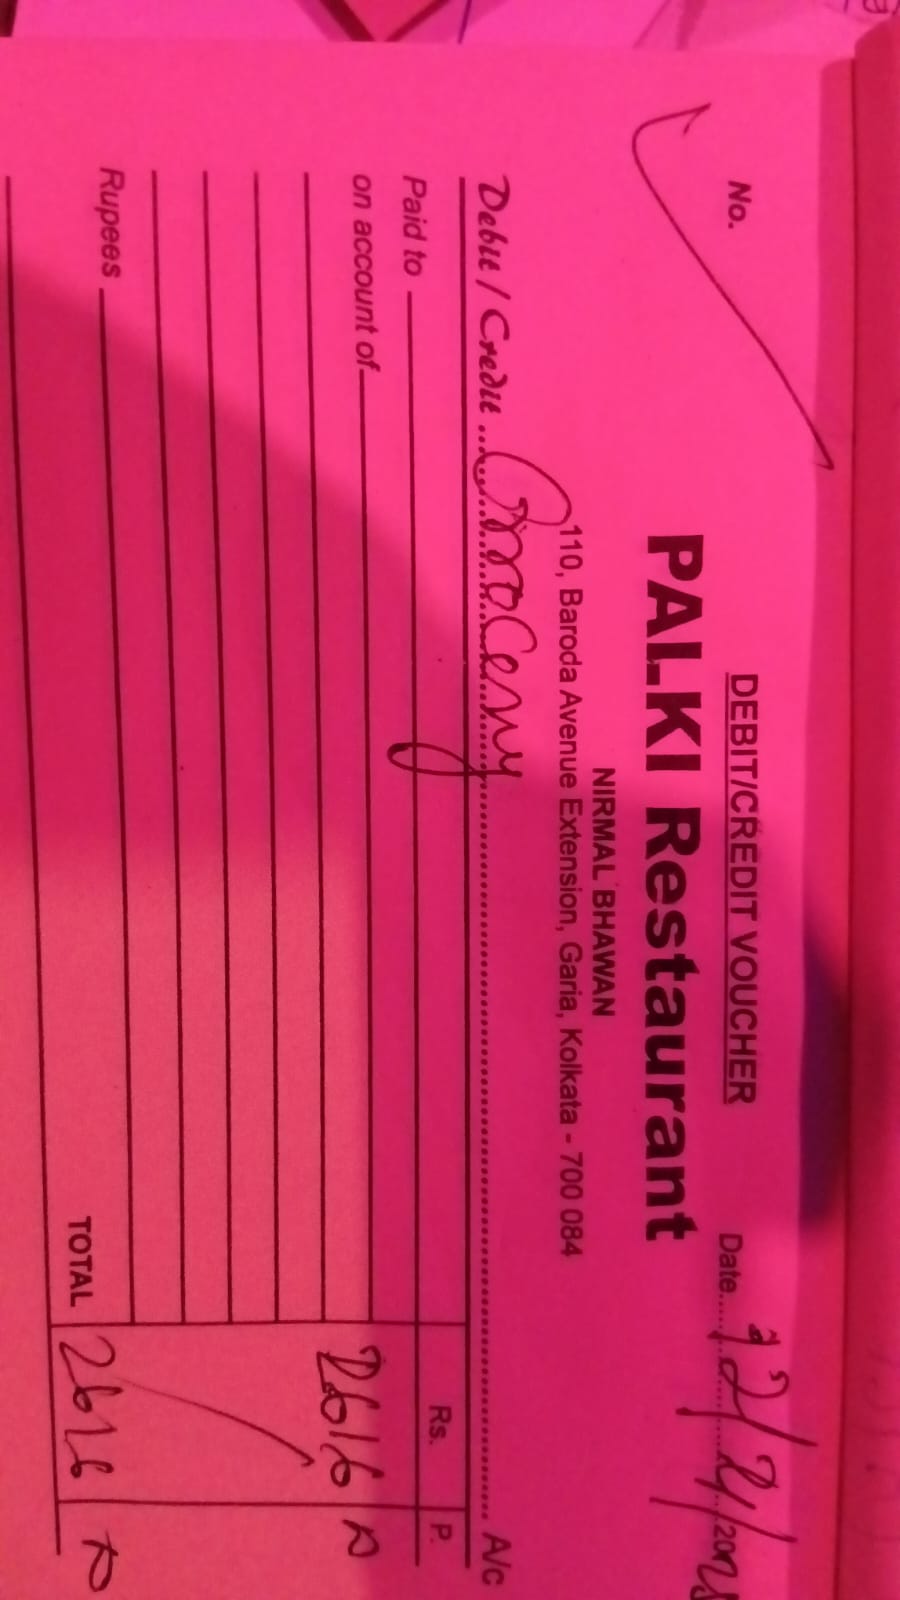 DEBIT/CREDIT VOUCHER
No.
Date............20
PALKI Restaurant
NIRMAL BHAWAN
110, Baroda Avenue Extension, Garia, Kolkata - 700 084
Debit / Credit ... Grocery ... A/c
Paid to
Rs. P.
on account of
2616
Rupees
TOTAL 2616